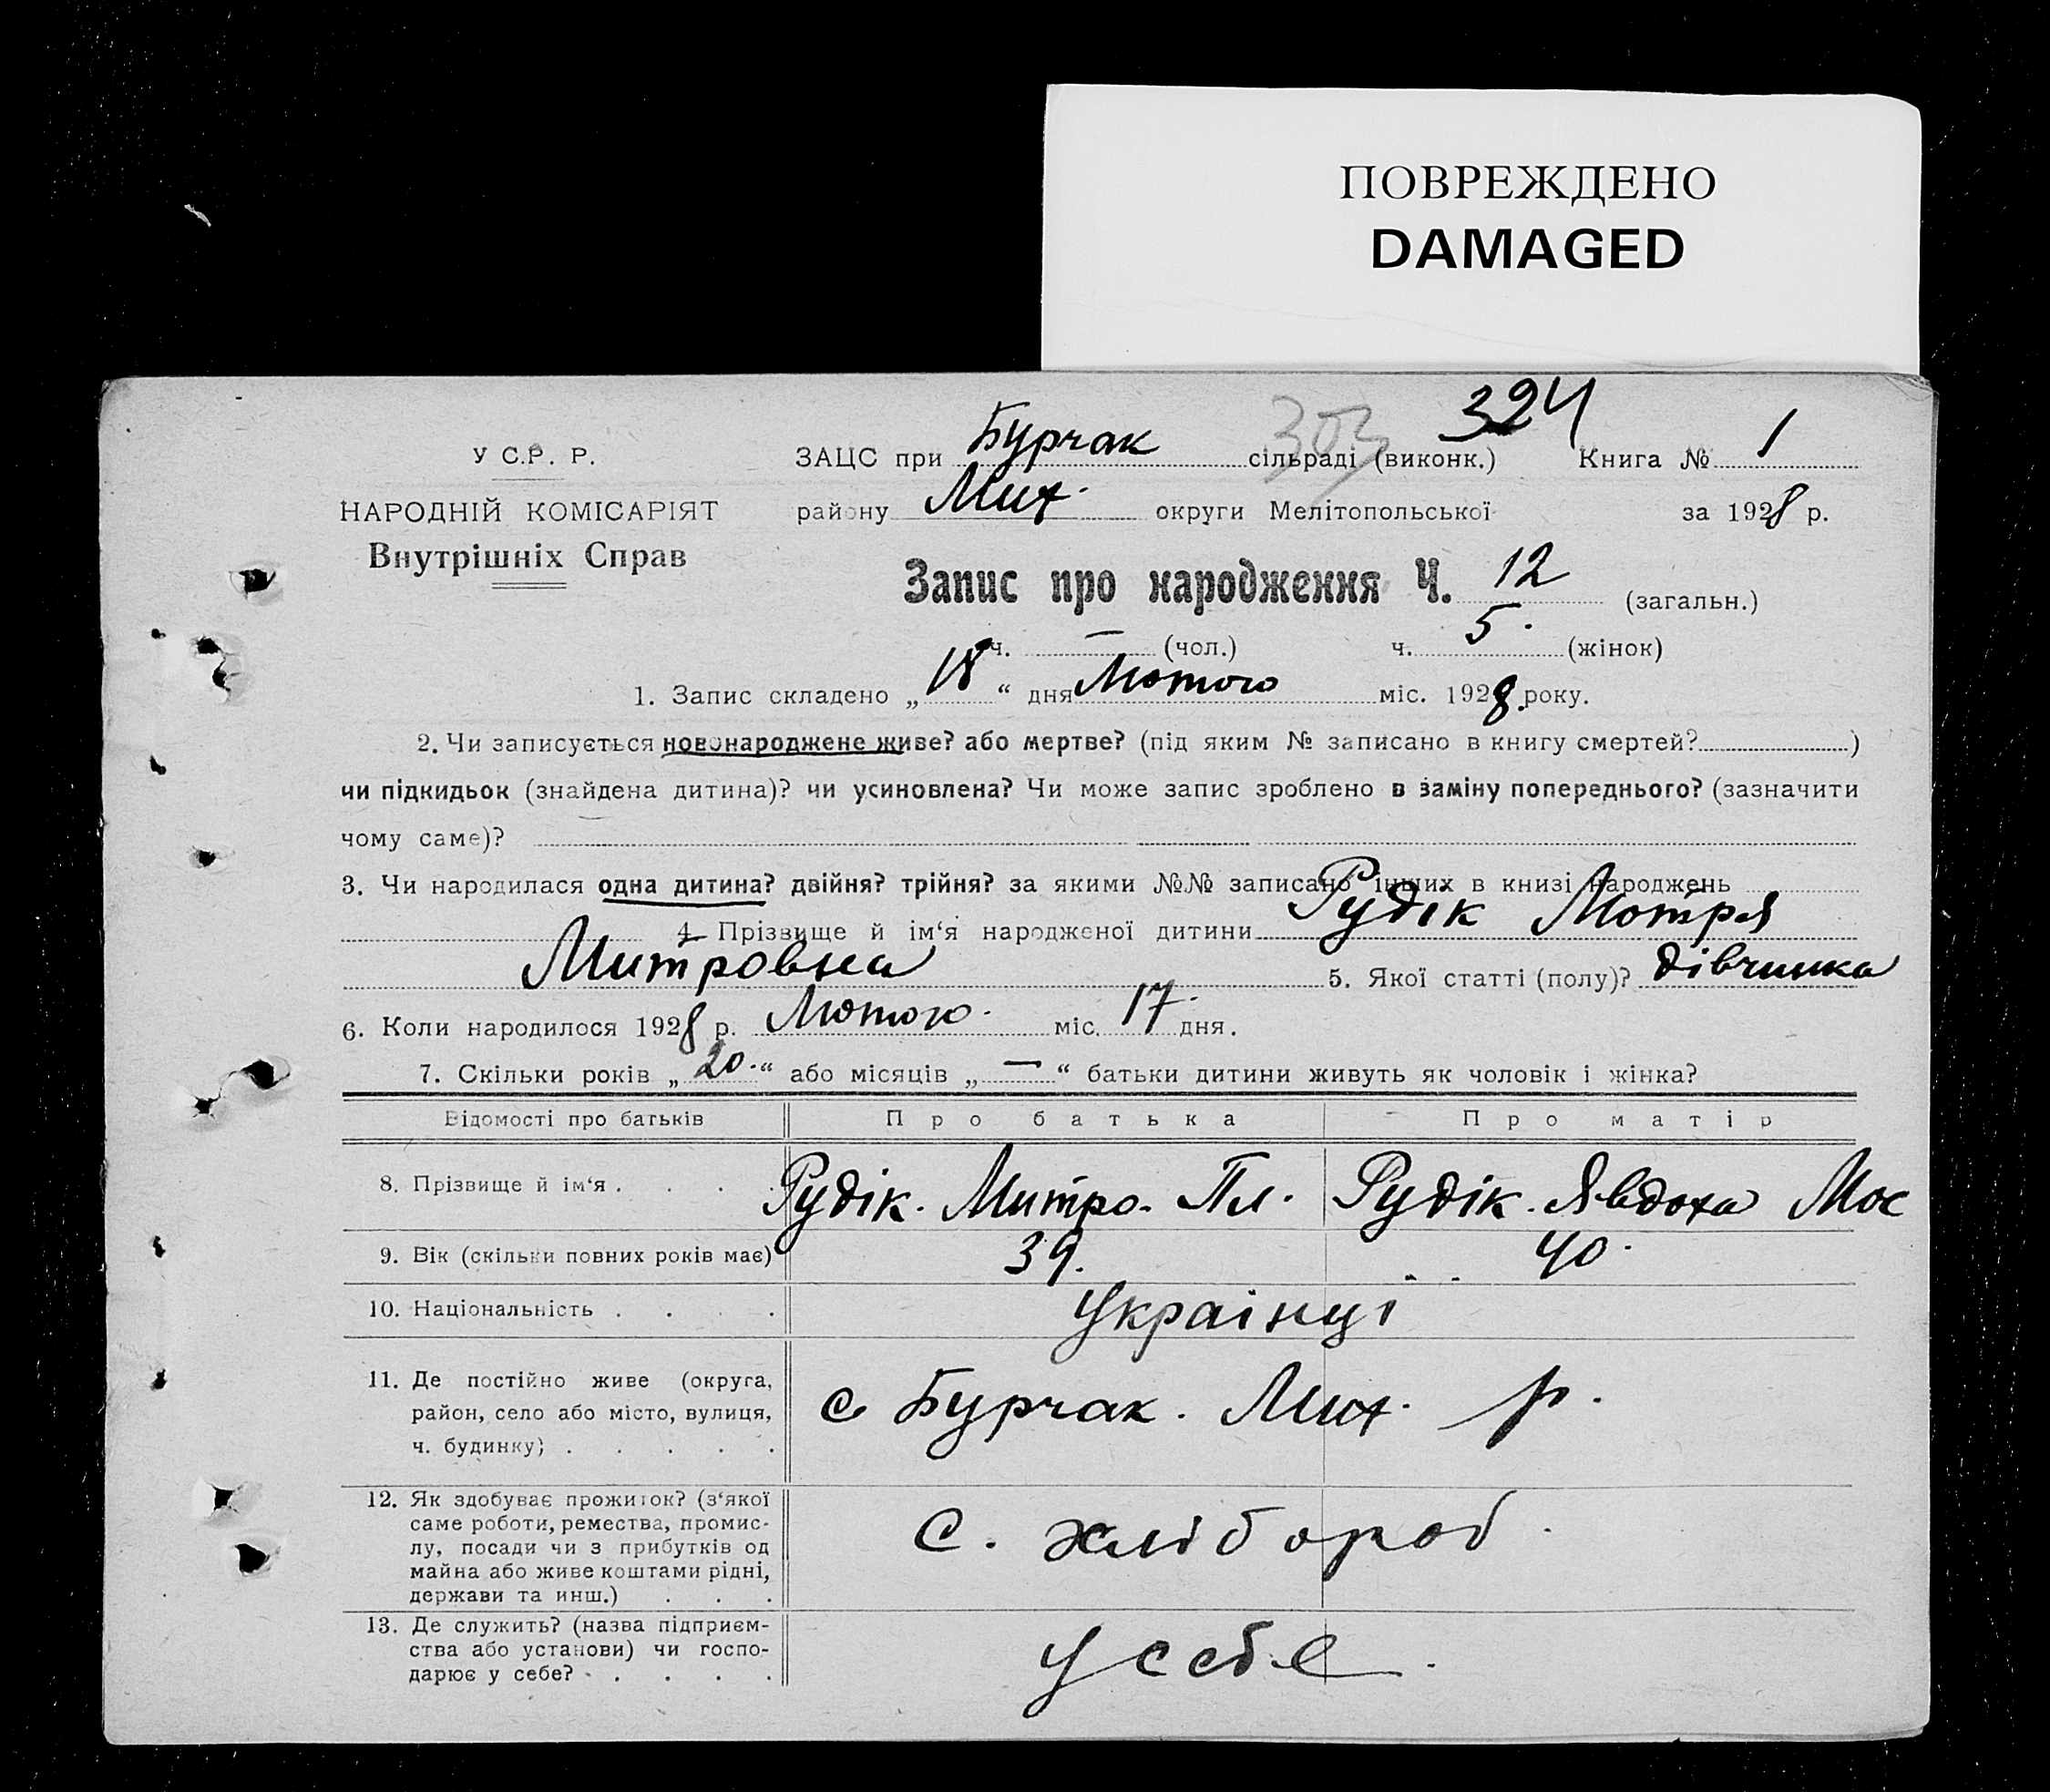 ПОВРЕЖДЕНО
DAMAGED
303 324
У С.Р. Р. ЗАЦС при Бурчак сільраді (виконк.) Книга № 1
НАРОДНІЙ КОМІСАРІЯТ району Мих. округи Мелітопольської за 1928 р.
Внутрішніх Справ
Запис про народження Ч. 12 (загальн.)
ч. — (чол.) ч. 5. (жінок)
1. Запис складено „18“ дня Лютого міс. 1928 року.
2. Чи записується новонароджене живе? або мертве? (під яким № записано в книгу смертей? )
чи підкидьок (знайдена дитина)? чи усиновлена? Чи може запис зроблено в заміну попереднього? (зазначити
чому саме)?
3. Чи народилася одна дитина? двійня? трійня? за якими №№ записано інших в книзі народжень
4. Прізвище й ім‘я народженої дитини Рудік Мотря
Митровна 5. Якої статті (полу)? дівчинка
6. Коли народилося 1928 р. Лютого. міс. 17. дня.
7. Скільки років „20.“ або місяців „—“ батьки дитини живуть як чоловік і жінка?
Відомості про батьків Про батька Про матір
8. Прізвище й ім‘я . . . . Рудік. Митро. Пл. Рудік. Явдоха Мос
9. Вік (скільки повних років має) 39. 40.
10. Національність . . . . Украінці
11. Де постійно живе (округа,
район, село або місто, вулиця,
ч. будинку) . . . . . с Бурчак. Мих. р.
12. Як здобуває прожиток? (з‘якої
саме роботи, ремества, промис-
лу, посади чи з прибутків од
майна або живе коштами рідні,
держави та инш.) . . . с. хлібороб.
13. Де служить? (назва підприєм-
ства або установи) чи госпо-
дарює у себе? . . . . . у себе.